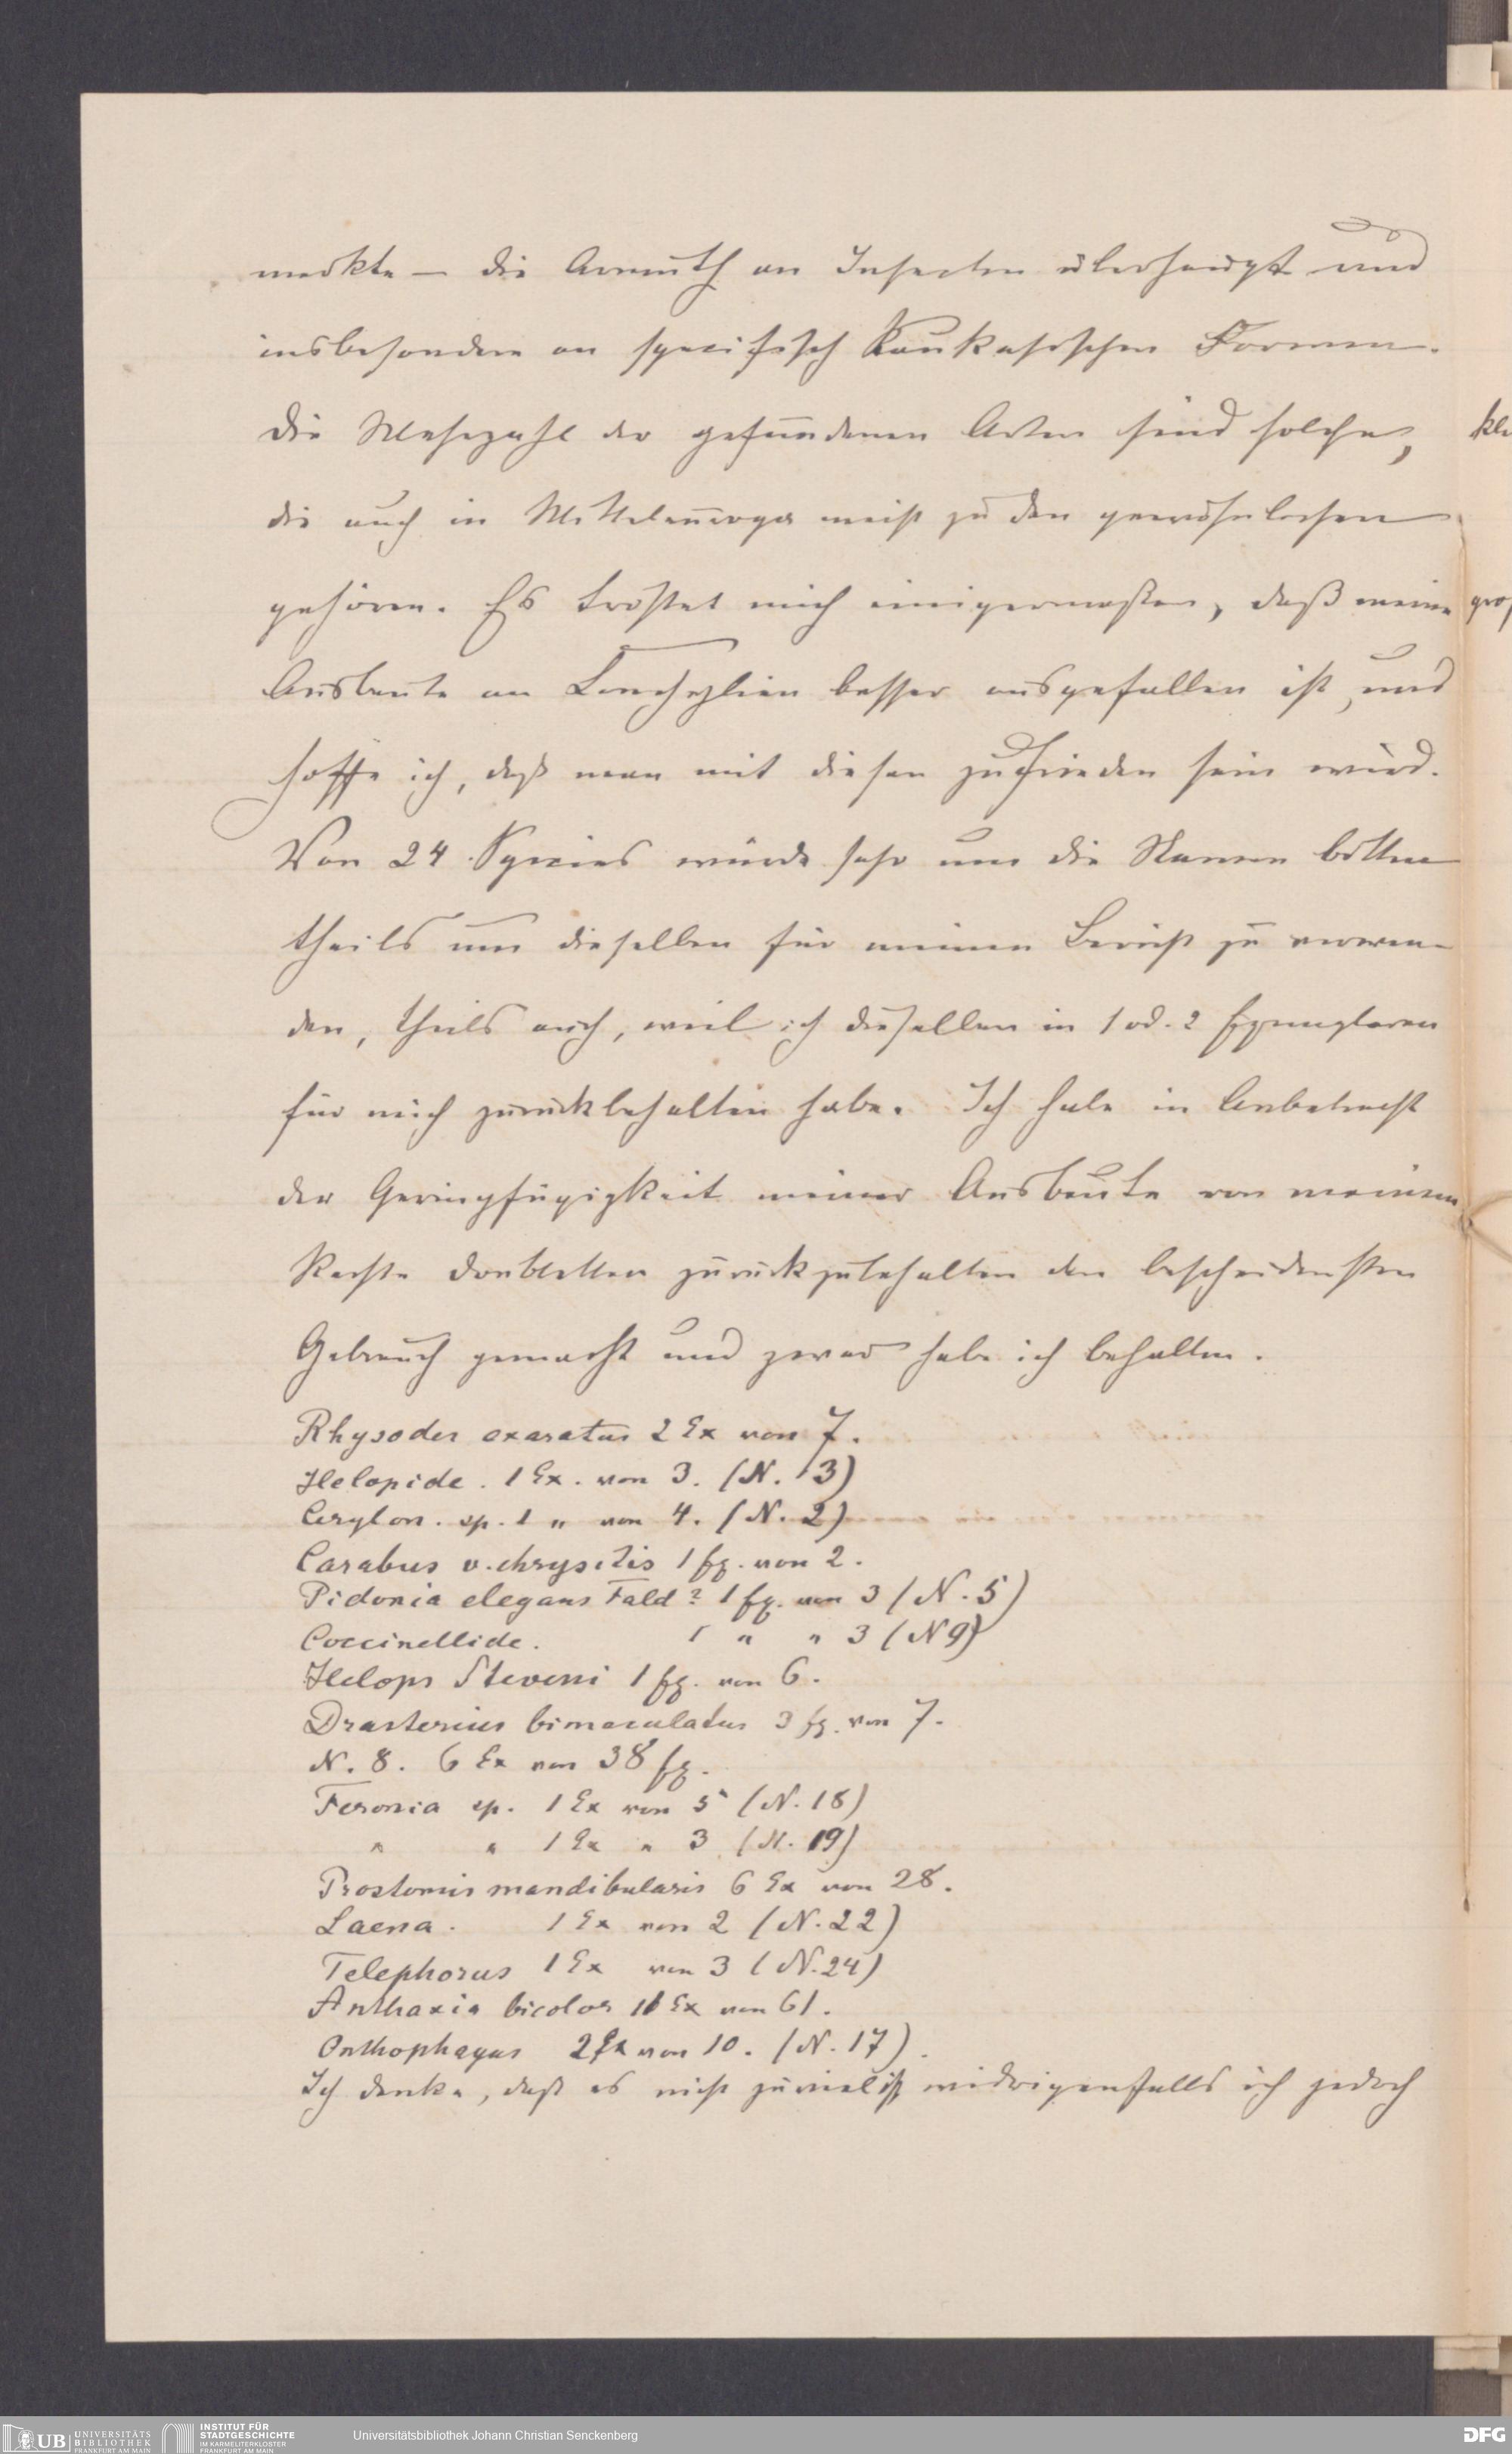 merkte – die Armuth an Insecten überhaupt und
insbesondere an specifisch Kaukasischen Formen.
Die Mehrzahl der gefundenen Arten sind solche,
die auch in Mitteleuropa meist zu den gewöhnlichen
gehören. Es tröstet mich einigermaßen, daß meine
Ausbeute an Conchylien besser ausgefallen ist, und
hoffe ich, daß man mit diesen zufrieden sein wird.
Von 24 Species würde sehr um die Namen bitten
theils um dieselben für meinen Bericht zu verwen-
den, theils auch, weil ich dieselben in 1 od. 2 Exemplaren
für mich zurückbehalten habe. Ich habe in Anbetracht
der Geringfügigkeit meiner Ausbeute von meinem
Rechte Doubletten zurückzubehalten den bescheidensten
Gebrauch gemacht und zwar habe ich behalten.
Rhysodes exaratus 2 Ex von 7.
Helopide. 1 Ex. von 3. (N. 13)
Cerylon. sp. 1 " von 4. (N. 2)
Carabus v. chrysitis 1 Ex. von 2.
Pidonia elegans Fald? 1 Ex. von 3 (N. 5)
Coccinellide. 1 " " 3 (N 9)
Helops Steveni 1 Ex. von 6.
Drasterius bimaculatus 3 Ex. von 7.
N. 8. 6 Ex von 38 Ex.
Feronia sp. 1 Ex von 5 (N. 18)
" " 1 Ex " 3 (N. 19)
Prostomis mandibularis 6 Ex von 28.
Laena. 1 Ex von 2 (N. 22)
Telephorus 1 Ex von 3 (N. 24)
Anthaxia bicolor 11 Ex von 61.
Onthophagus 2 Ex von 10. (N. 17).
Ich denke, daß es nicht zuviel ist, widrigenfalls ich jedoch
UB UNIVERSITÄTS
BIBLIOTHEK
FRANKFURT AM MAIN
INSTITUT FÜR
STADTGESCHICHTE
IM KARMELITERKLOSTER
FRANKFURT AM MAIN
Universitätsbibliothek Johann Christian Senckenberg
DFG